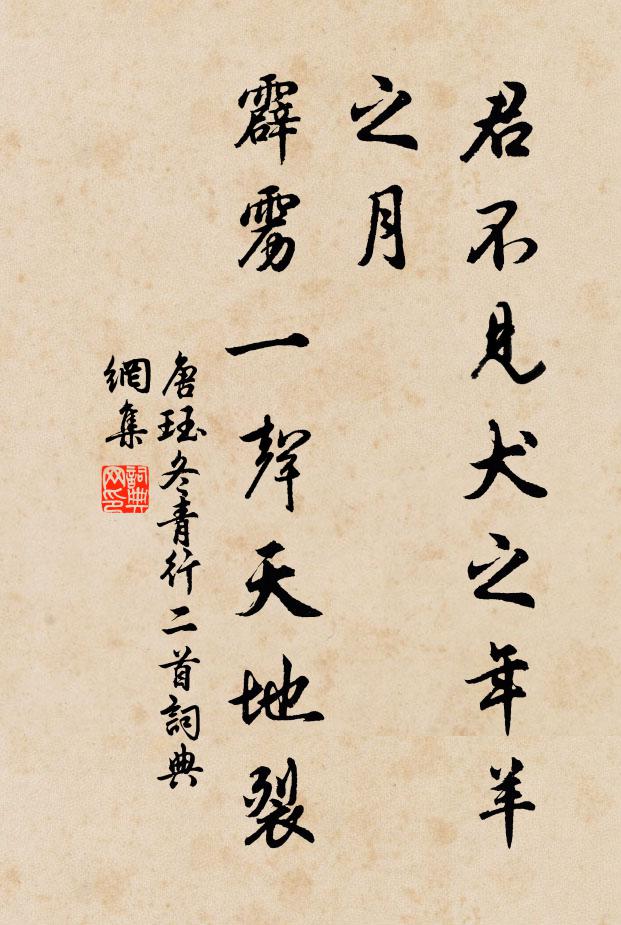 君不見犬之年羊
之月
霹雳一聲天地裂
唐珏冬青行二首詞典
網集
詞典
网印